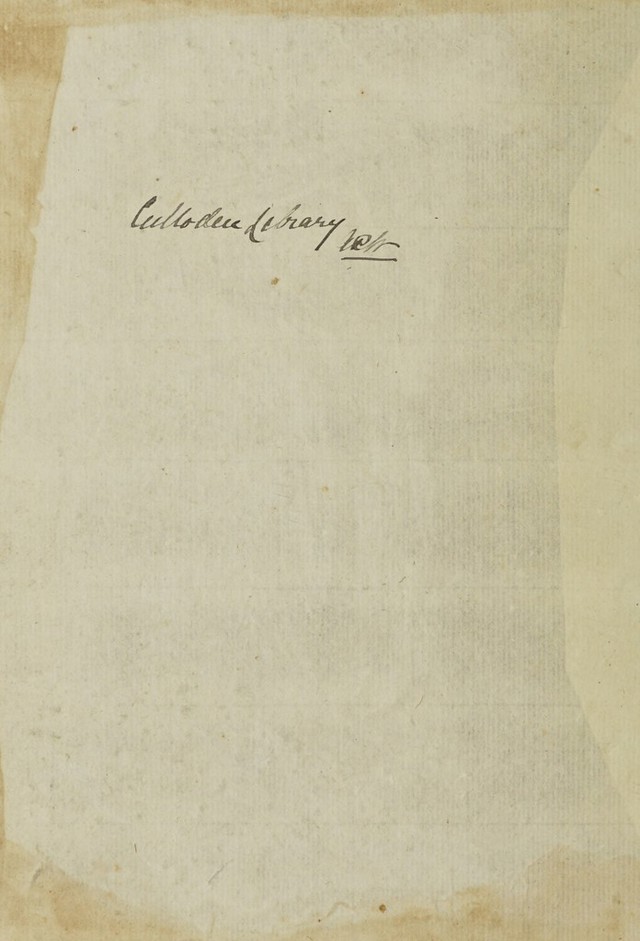 Culloden Library